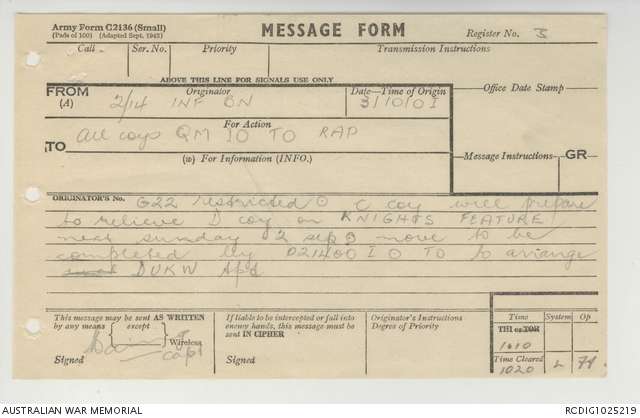 Army Form C2136 (Small)
(Pads of 100) (Adapted Sept. 1943)
MESSAGE FORM
Register No. 3
Call
Ser. No.
Priority
Transmission Instructions
ABOVE THIS LINE FOR SIGNALS USE ONLY
FROM
(A)
Originator
2/14 INF BN
Date—Time of Origin
31/10/0 I
Office Date Stamp
For Action
TO
All coys QM IO TO RAP
(W) For Information (INFO.)
Message Instructions
GR
ORIGINATOR'S No. G22 restricted ⊙ C coy will prepare
to relieve D coy on KNIGHTS FEATURE
next sunday 2 sep ⊙ move to be
completed by 021400 I ⊙ TO to arrange
DUKW
This message may be sent AS WRITTEN
by any means except Wireless
capt
Signed
If liable to be intercepted or fall into
enemy hands, this message must be
sent IN CIPHER
Signed
Originator's Instructions
Degree of Priority
Time
System
Op
THI or TOR
1010
Time Cleared
1020
L
AUSTRALIAN WAR MEMORIAL
RCDIG1025219